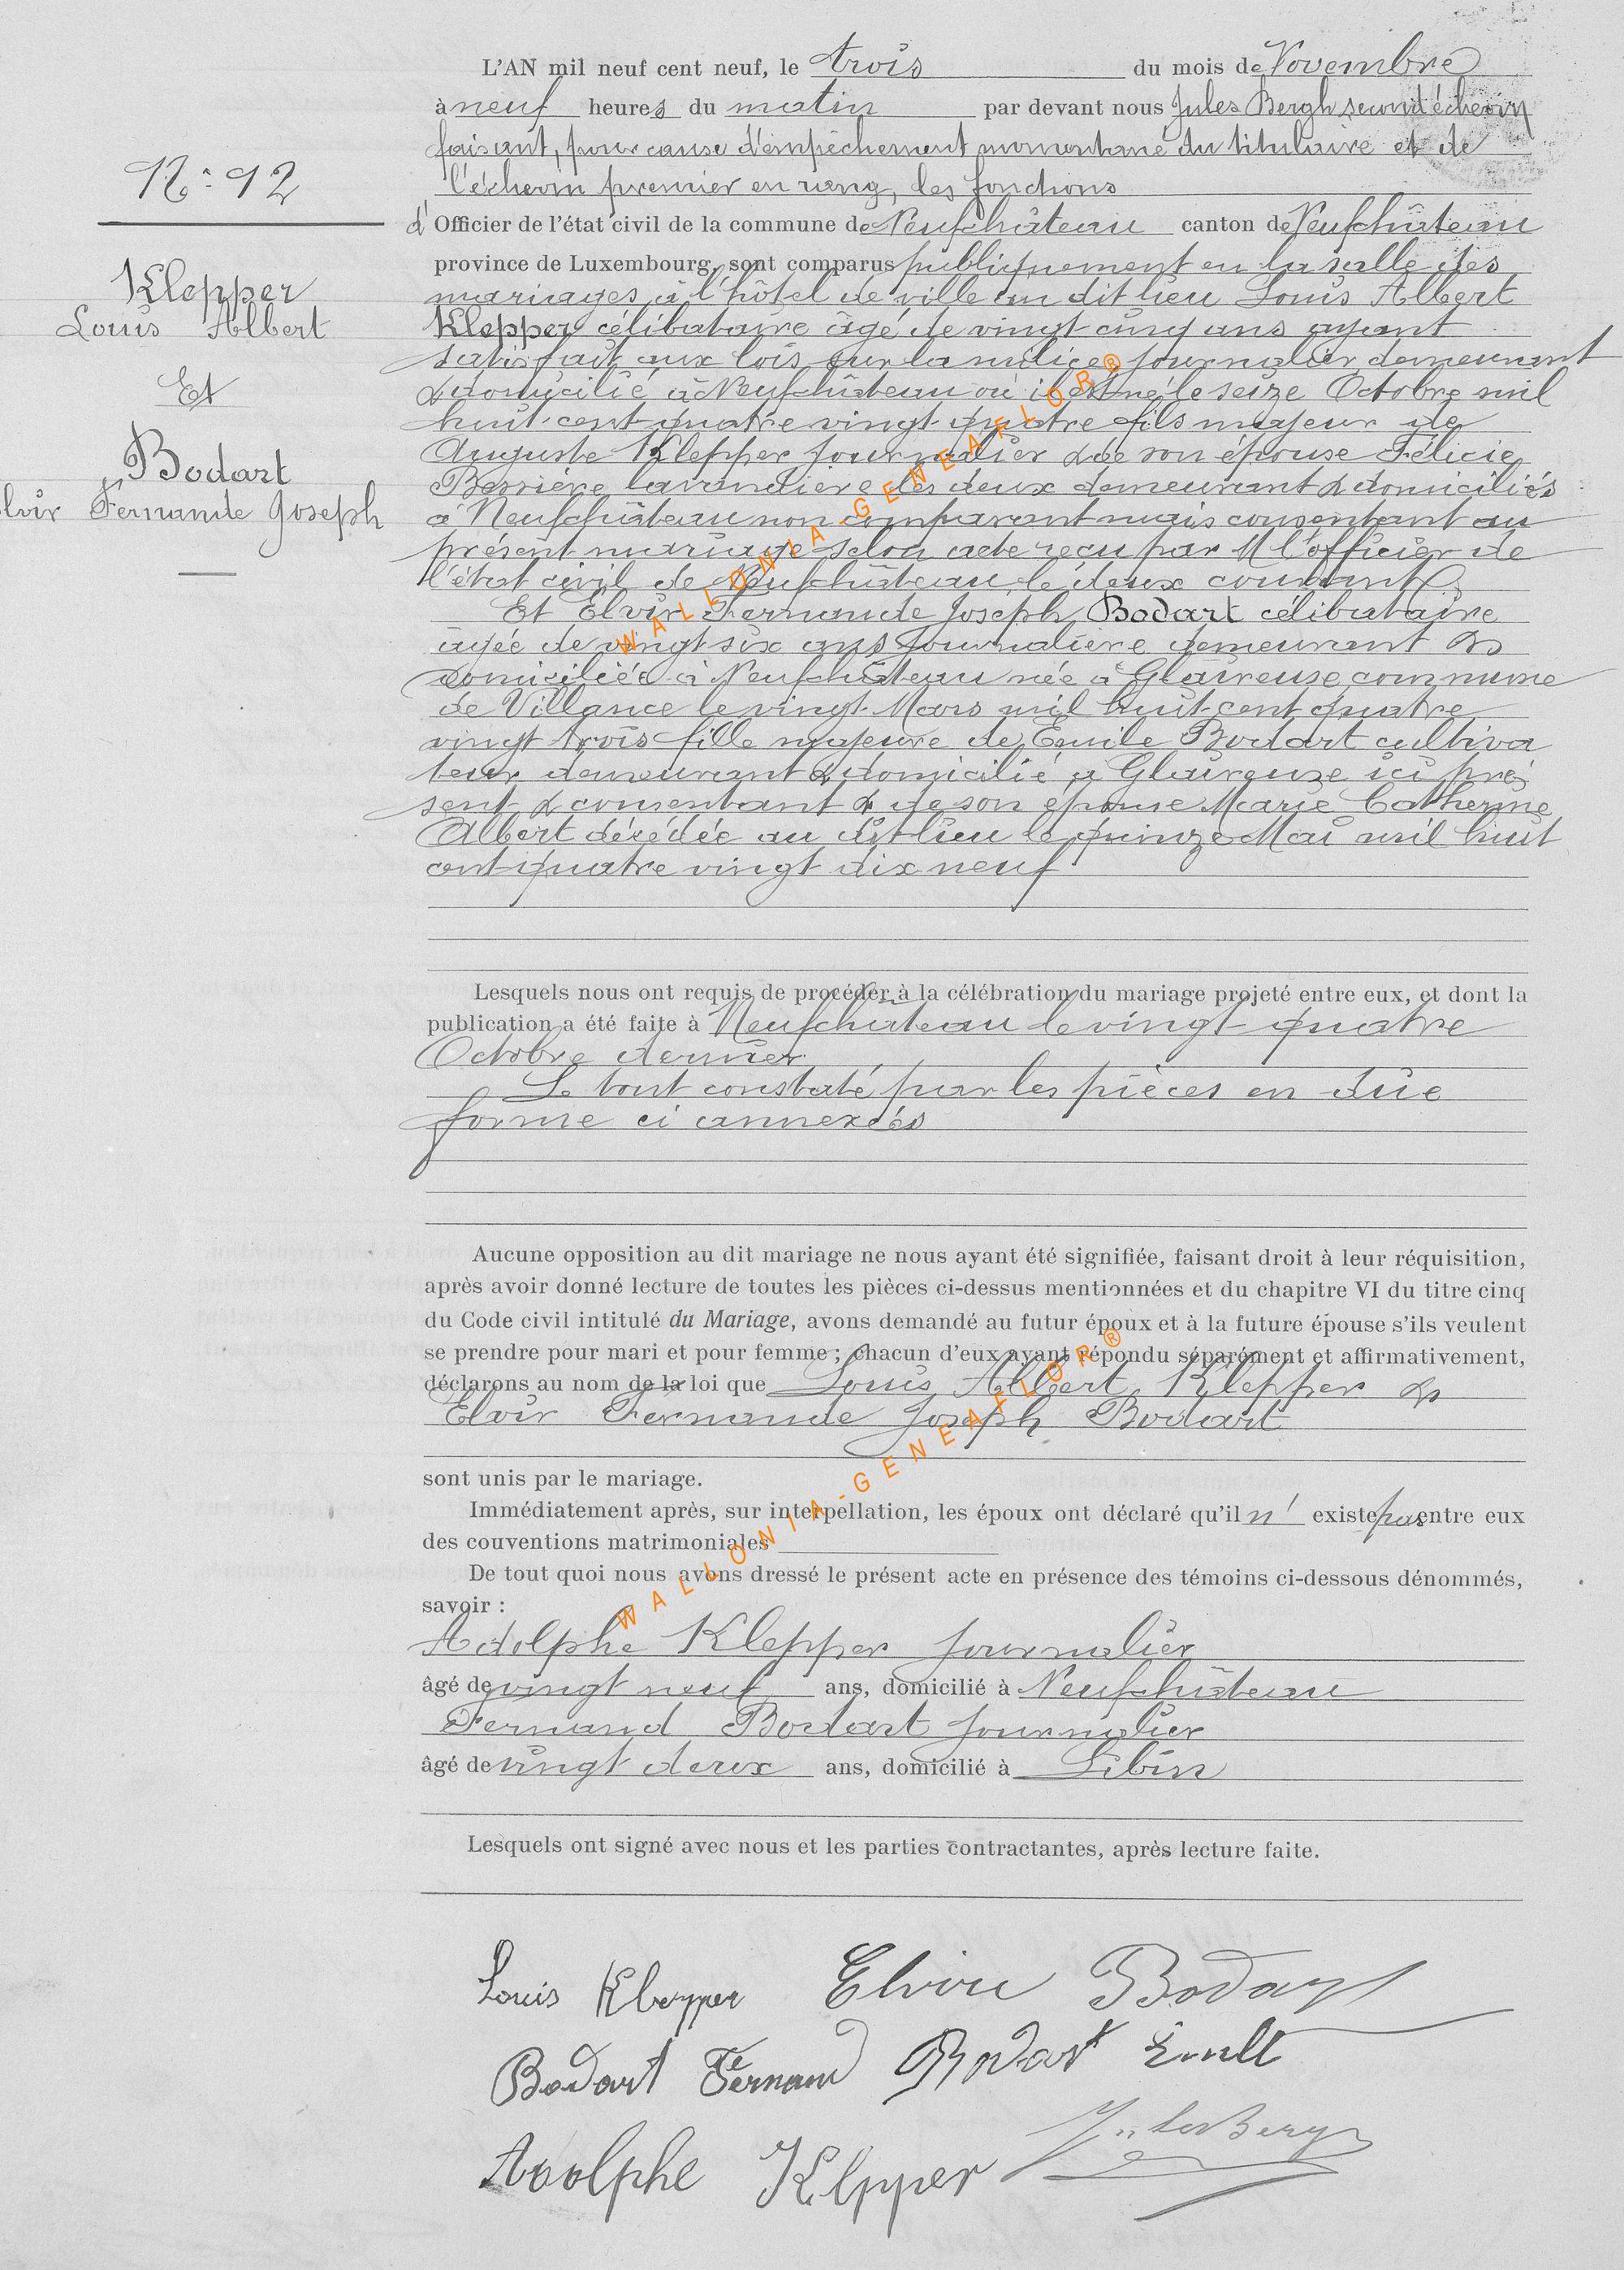 L'AN mil neuf cent neuf, le trois du mois de Novembre
à neuf heures du matin par devant nous Jules Bergh second échevin
faisant, pour cause d'empêchement momentané du titulaire et de
l'échevin premier en rang, les fonctions
d'Officier de l'état civil de la commune de Neufchâteau canton de Neufchâteau
province de Luxembourg, sont comparus publiquement en la salle des
mariages à l'hôtel de ville au dit lieu Louis Albert
Klepper célibataire âgé de vingt cinq ans ayant
satisfait aux lois sur la milice journalier demeurant
& domicilié à Neufchâteau où il est né le seize Octobre mil
huit cent quatre vingt quatre fils majeur de
Auguste Klepper journalier & de son épouse Félicie
lavandière les deux demeurant & domiciliés
à Neufchâteau non comparant mais consentant au
présent mariage selon acte reçu par M l'officier de
l'état civil de Neufchâteau le deux courant
Et Elvir Fernande Joseph Bodart célibataire
âgée de vingt six ans journalière demeurant &
domiciliée à Neufchâteau née à Glaireuse commune
de Villance le vingt Mars mil huit cent quatre
vingt trois fille majeure de Emile Bodart cultiva
teur demeurant & domicilié à Glaireuse ici pré
sent & consentant & de son épouse Marie Catherine
Albert décédée au dit lieu le quinze Mai mil huit
cent quatre vingt dix neuf
N: 92
Klepper
Louis Albert
Et
Bodart
lvir Fernande Joseph
Lesquels nous ont requis de procéder à la célébration du mariage projeté entre eux, et dont la
publication a été faite à Neufchâteau le vingt quatre
Octobre dernier
Le tout constaté par les pièces en dûe
forme ci annexées
Aucune opposition au dit mariage ne nous ayant été signifiée, faisant droit à leur réquisition,
après avoir donné lecture de toutes les pièces ci-dessus mentionnées et du chapitre VI du titre cinq
du Code civil intitulé du Mariage, avons demandé au futur époux et à la future épouse s'ils veulent
se prendre pour mari et pour femme ; chacun d'eux ayant répondu séparément et affirmativement,
déclarons au nom de la loi que Louis Albert Klepper &
Elvir Fernande Joseph Bodart
sont unis par le mariage.
Immédiatement après, sur interpellation, les époux ont déclaré qu'il n' existe pas entre eux
des conventions matrimoniales
De tout quoi nous avons dressé le présent acte en présence des témoins ci-dessous dénommés,
savoir :
Adolphe Klepper journalier
âgé de vingt neuf ans, domicilié à Neufchâteau
Fernand Bodart journalier
âgé de vingt deux ans, domicilié à Libin
Lesquels ont signé avec nous et les parties contractantes, après lecture faite.
Louis Klepper Elvire Bodart
Bodart Fernand Bodart Emile
Adolphe Klpper Jules Bergh
WALLONIA-GENEAFLOR®
WALLONIA-GENEAFLOR®